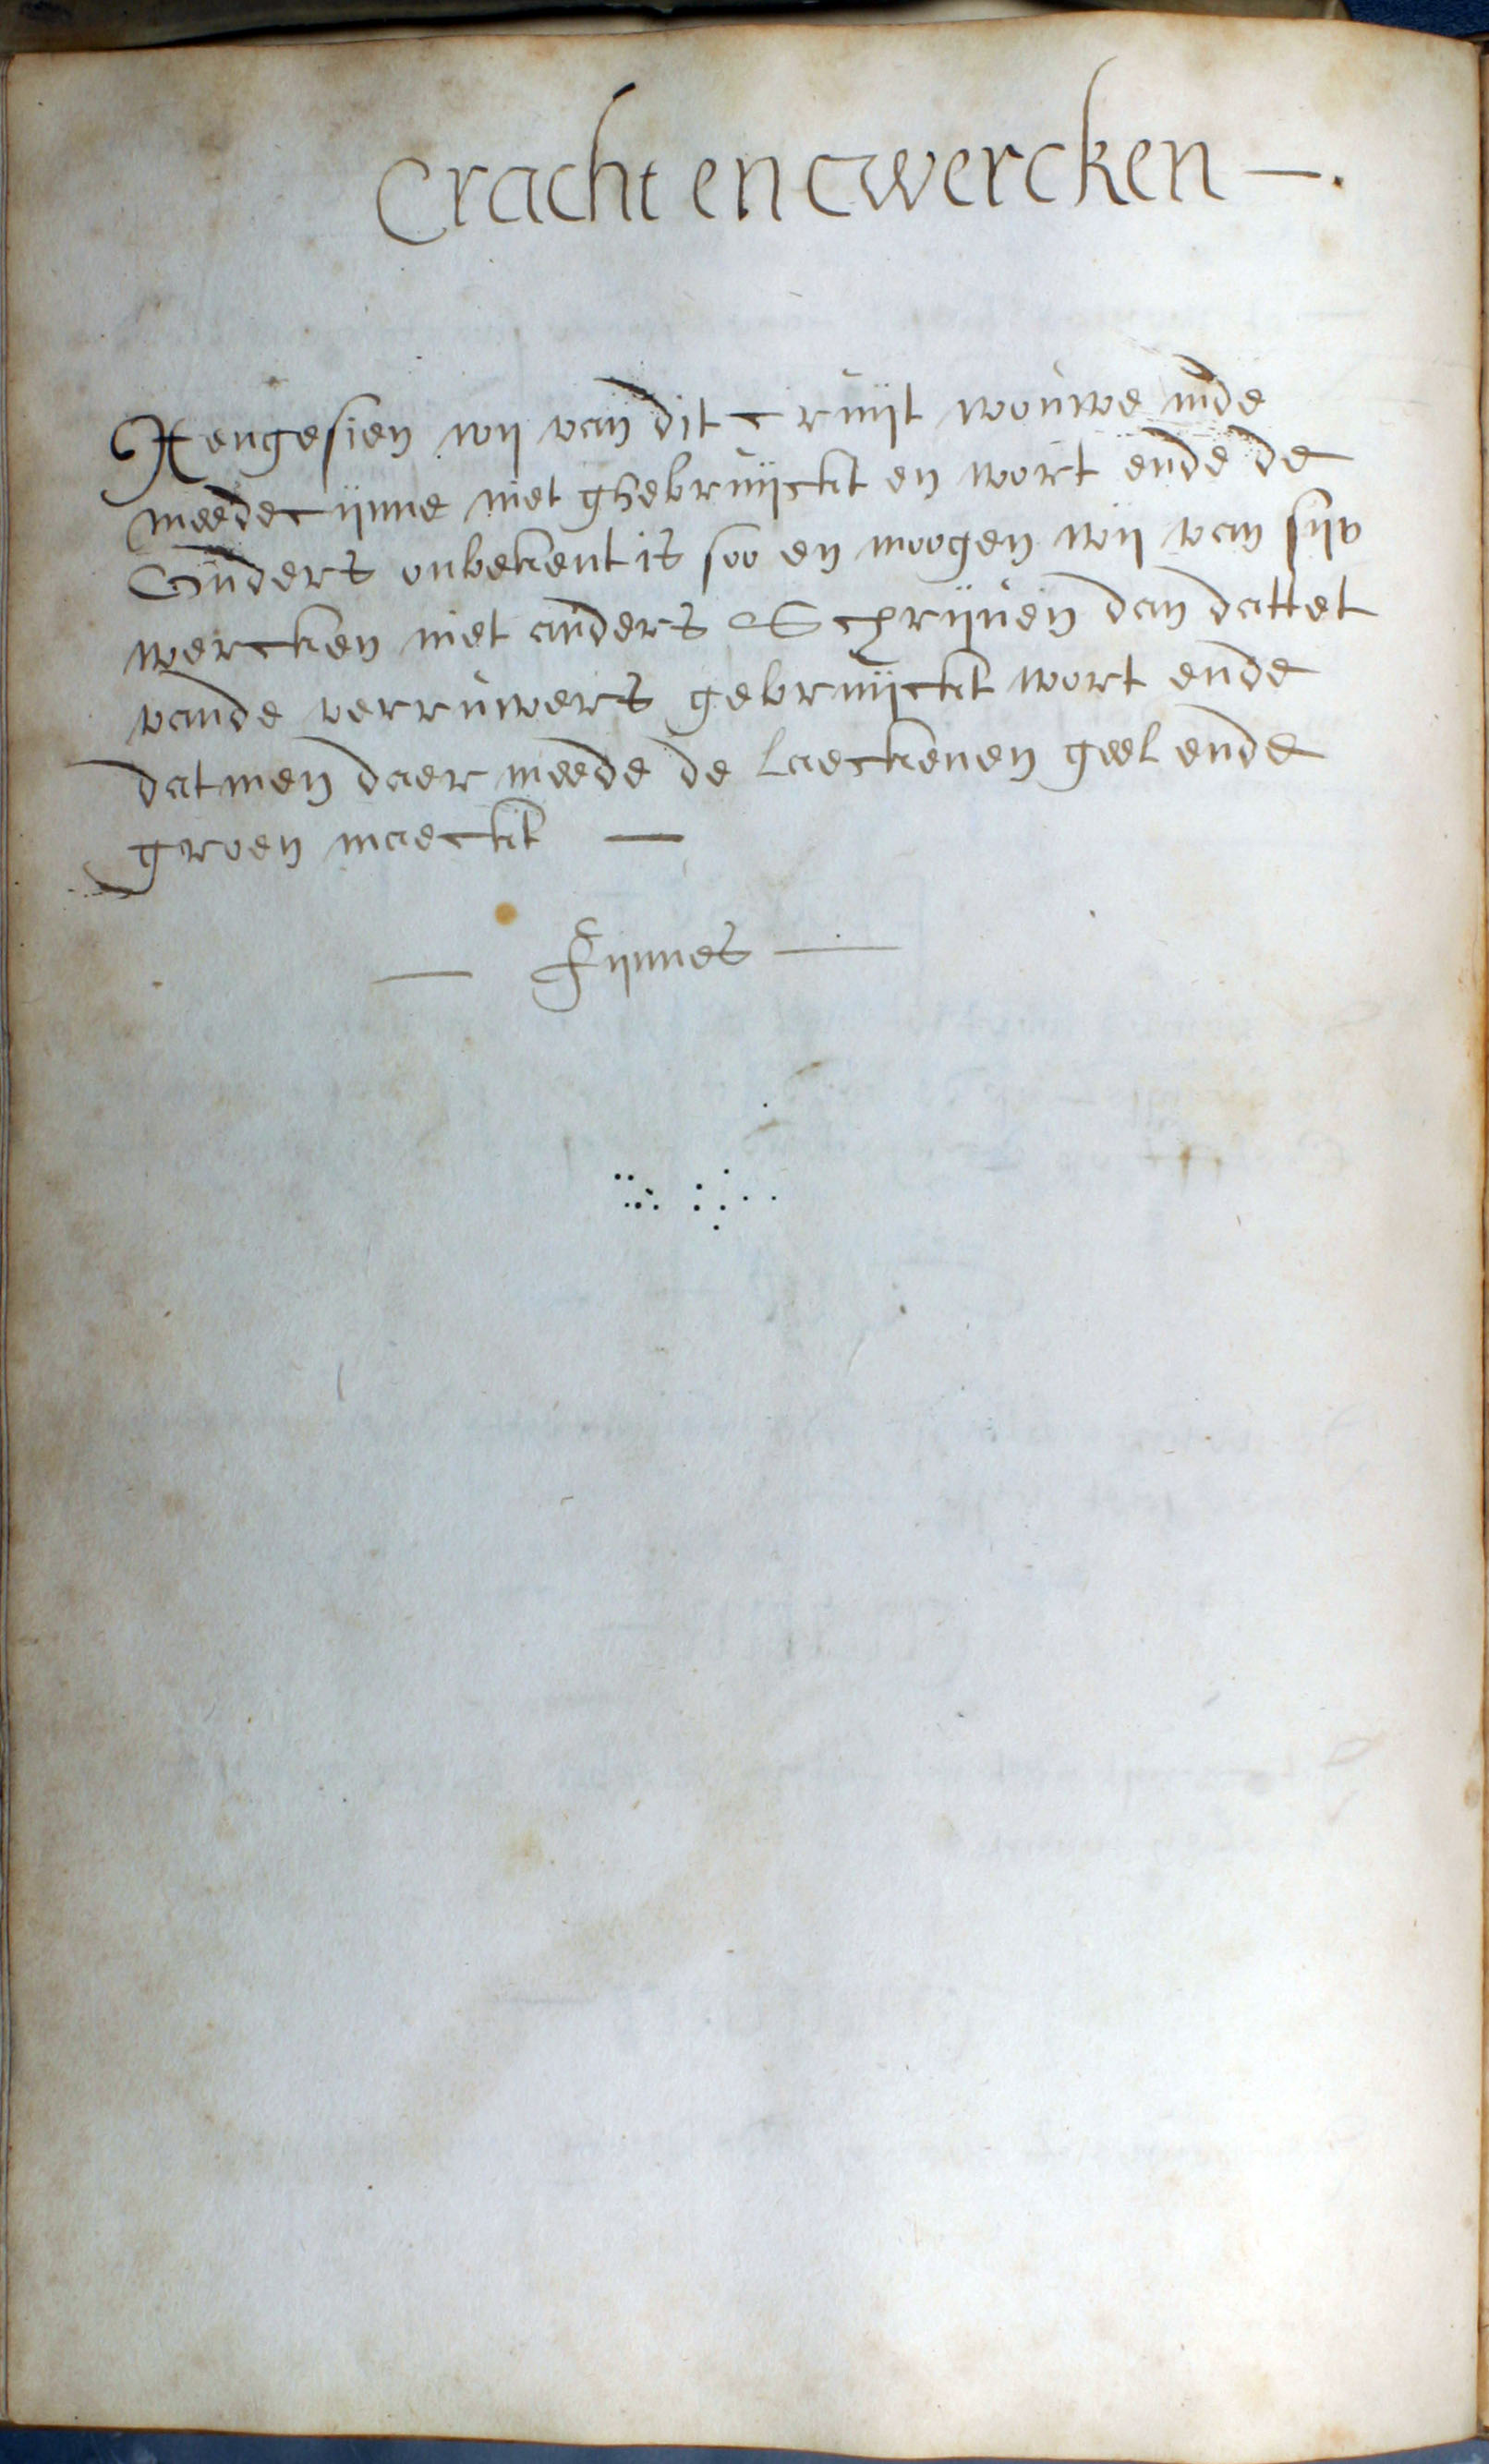 Cracht en cwercken —.
Aengesien wij van dit cruijt wouwe inde
meedecijnne niet ghebruijckt en wort ende de
Guders onbekent is soo en moogen wij van sijn
wercken niet anders Schrijuen dan dattet
vande verruwers gebruijckt wort ende
datmen daer meede de laeckenen geel ende
groen maeckt —
— Fijnnes —